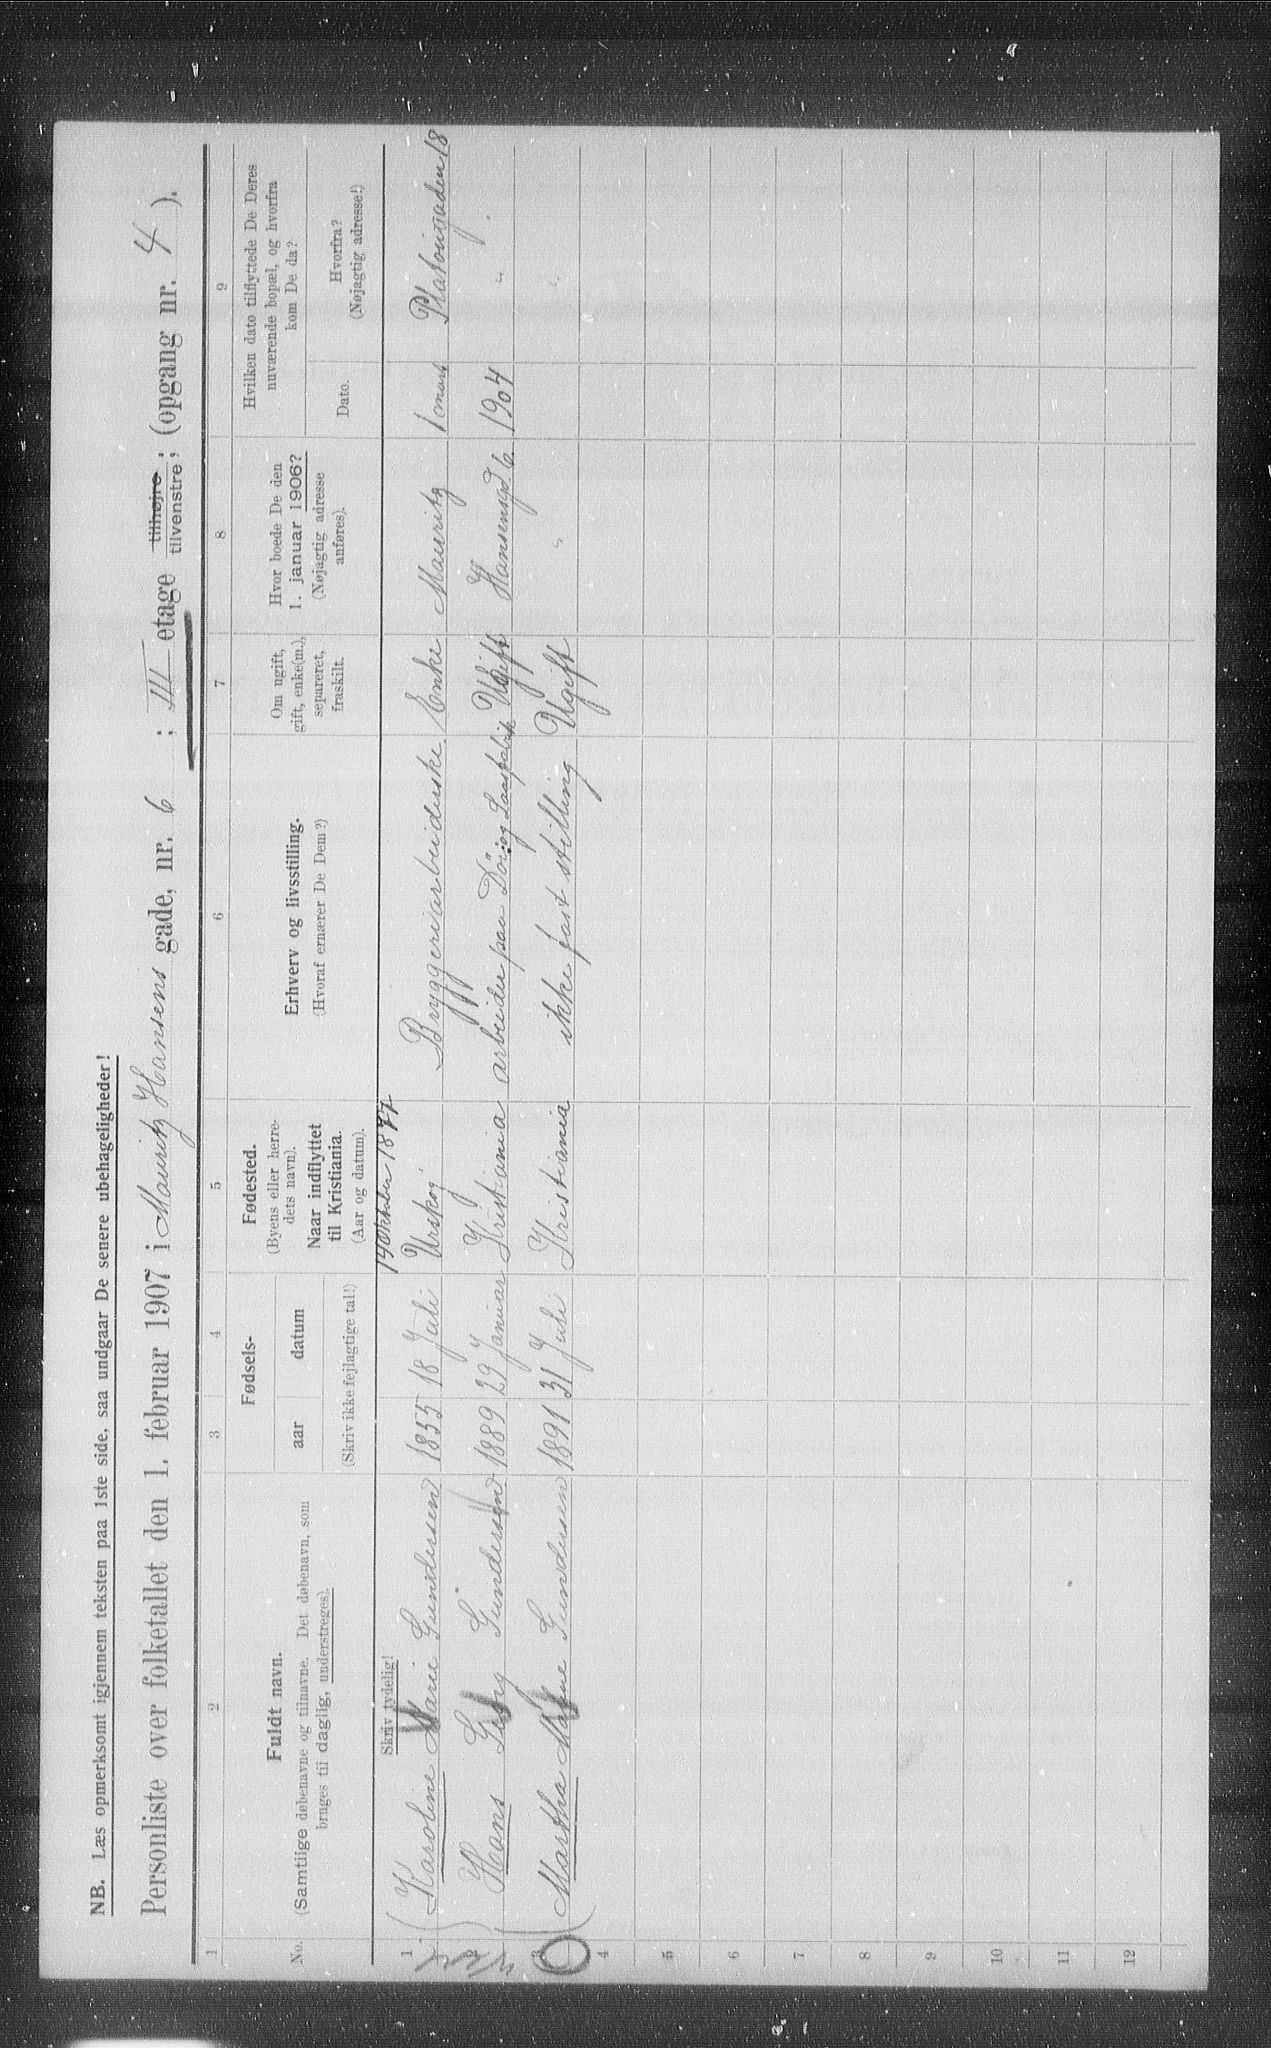 NB. Læs opmerksomt igjennem teksten paa 1ste side, saa undgaar De senere ubehageligheder!
Personliste over folketallet den 1. februar 1907 i Mauritz Hansens gade, nr. 6 ; III etage tilhøjre tilvenstre ; (opgang nr. 4 ).
1 2 3 4 5 6 7 8 9
No.
Fuldt navn.
(Samtlige døbenavne og tilnavne. Det døbenavn, som
bruges til daglig, understreges).
Skriv tydelig!
Fødsels-
aar datum
(Skriv ikke fejlagtige tal!)
Fødested.
(Byens eller herre-
dets navn).
Naar indflyttet
til Kristiania.
(Aar og datum).
Erhverv og livsstilling.
(Hvoraf ernærer De Dem?)
Om ugift,
gift, enke(m.),
separeret,
fraskilt.
Hvor boede De den
1. januar 1906?
(Nøjagtig adresse
anføres).
Hvilken dato tilflyttede De Deres
nuværende bopæl, og hvorfra
kom De da?
Dato.
Hvorfra?
(Nøjagtig adresse!)
Oktober 1877
1 Karoline Marie Gundersen 1855 18 Juli Urskog Bryggeriarbeiderske Enke Mauritz 1 mars Platougaden 18
2 Hans Georg Gundersen 1889 29 Januar Kristiania arbeider paa Dør og Laasfabrik Ugift Hansensgd. 6 1904 "
3 Martha Marie Gundersen 1891 31 Juli Kristiania ikke fast stilling Ugift " "
4
5
6
7
8
9
10
11
12